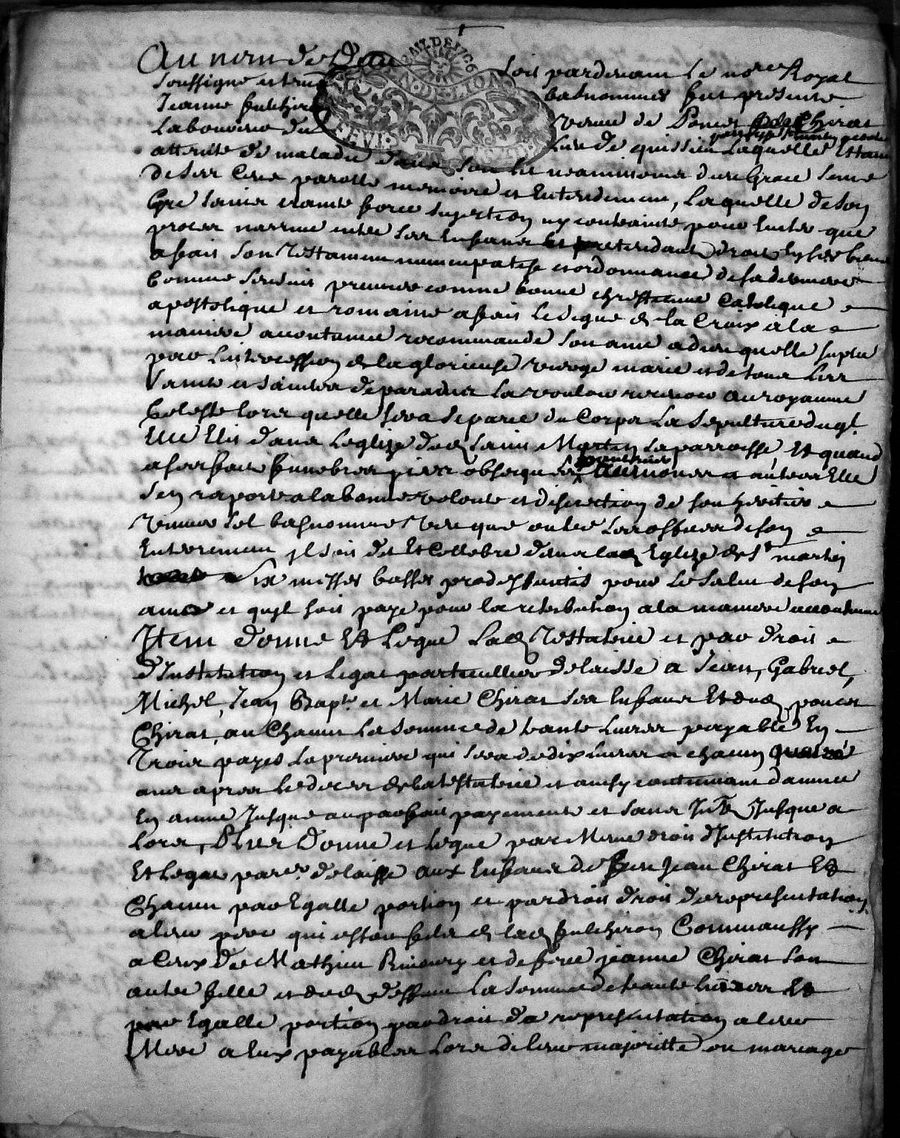 Au nom de Dieu soit pardevant le no.re Royal
soussigne et temoins bas nommes fut presente
Jeanne fulchiron veuve de Poncet Chirat
Laboureur du
attinte de maladie dans son lit neanmoins dieu grace saine
de ses sens parolle memoire et Entendement, Laquelle de son
Gre sans crainte force sujection ny contrainte pour Eviter que
proces narrive entre ses Enfans et pretendant droit En ses biens
a fait son Testament nuncupatif et ordonnance de sa derniere
Comme sensuit premiere comme bonne chrestienne Catolique
apostolique et romaine a fait le signe de la Croix a la
maniere accoutumé recommande son ame a dieu quelle suplie
par Lintercession de la glorieuse vierge marie et de tous les
Saints et Saintes de paradis la vouloir recevoir au royaume
Celeste lors quelle sera separee du Corps La sepulture
Elle Elit dans Leglize dud. Saint Martin sa parroisse Et quand
a ses frais funebres obseques aumones et autres Elle
sen raporte a la bonne volonte et discretion de son heritier
bas nomme
Enterrement Il soit dit Et Cellebre dans lad. Eglize de St. martin
six messes basses pro deffuntis pour le salut de son
ame et quil soit paye pour la retribution a la maniere accoutumé
Item donne Et Legue Lad. Testatrice et par droit
d'Institution et Legat particullier delaisse a Jean, Gabriel,
Michel, Jean Bapt. et Marie Chirat ses Enfans Et dud. poncet
Chirat, au Chacun La somme de trante Livres payable En
Trois payes La premiere qui sera de dix Livres a chacun quatre
ans apres le deces de la testatrice et ainsy continuant dannee
En annee Jusque au parfait payement et sans Jusque a
Lors, Plus Donne et legue par Meme droit d'Institution
Et Legat par.er delaisse aux Enfans de feu Jean Chirat Et
Chacun par Egalle portion et par droit de representation
a leur pere qui estoit fils de lad. fulchiron Comme aussy
a Ceux de Mathieu et de feue jeanne Chirat son
autre fille et dud. deffunt La somme de trante livres Et
par Egalle portion par droit de representation a leur
Mere a Eux payables Lors de leur majoritte ou mariage